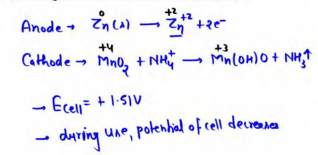 Anode → Zn(s) ⟶ Zn⁺² + 2e⁻
0 +2
Cathode → MnO₂ + NH₄⁺ ⟶ Mn(OH)O + NH₃↑
+4 +3
→ Ecell = + 1.51V
→ during use, potential of cell decreases